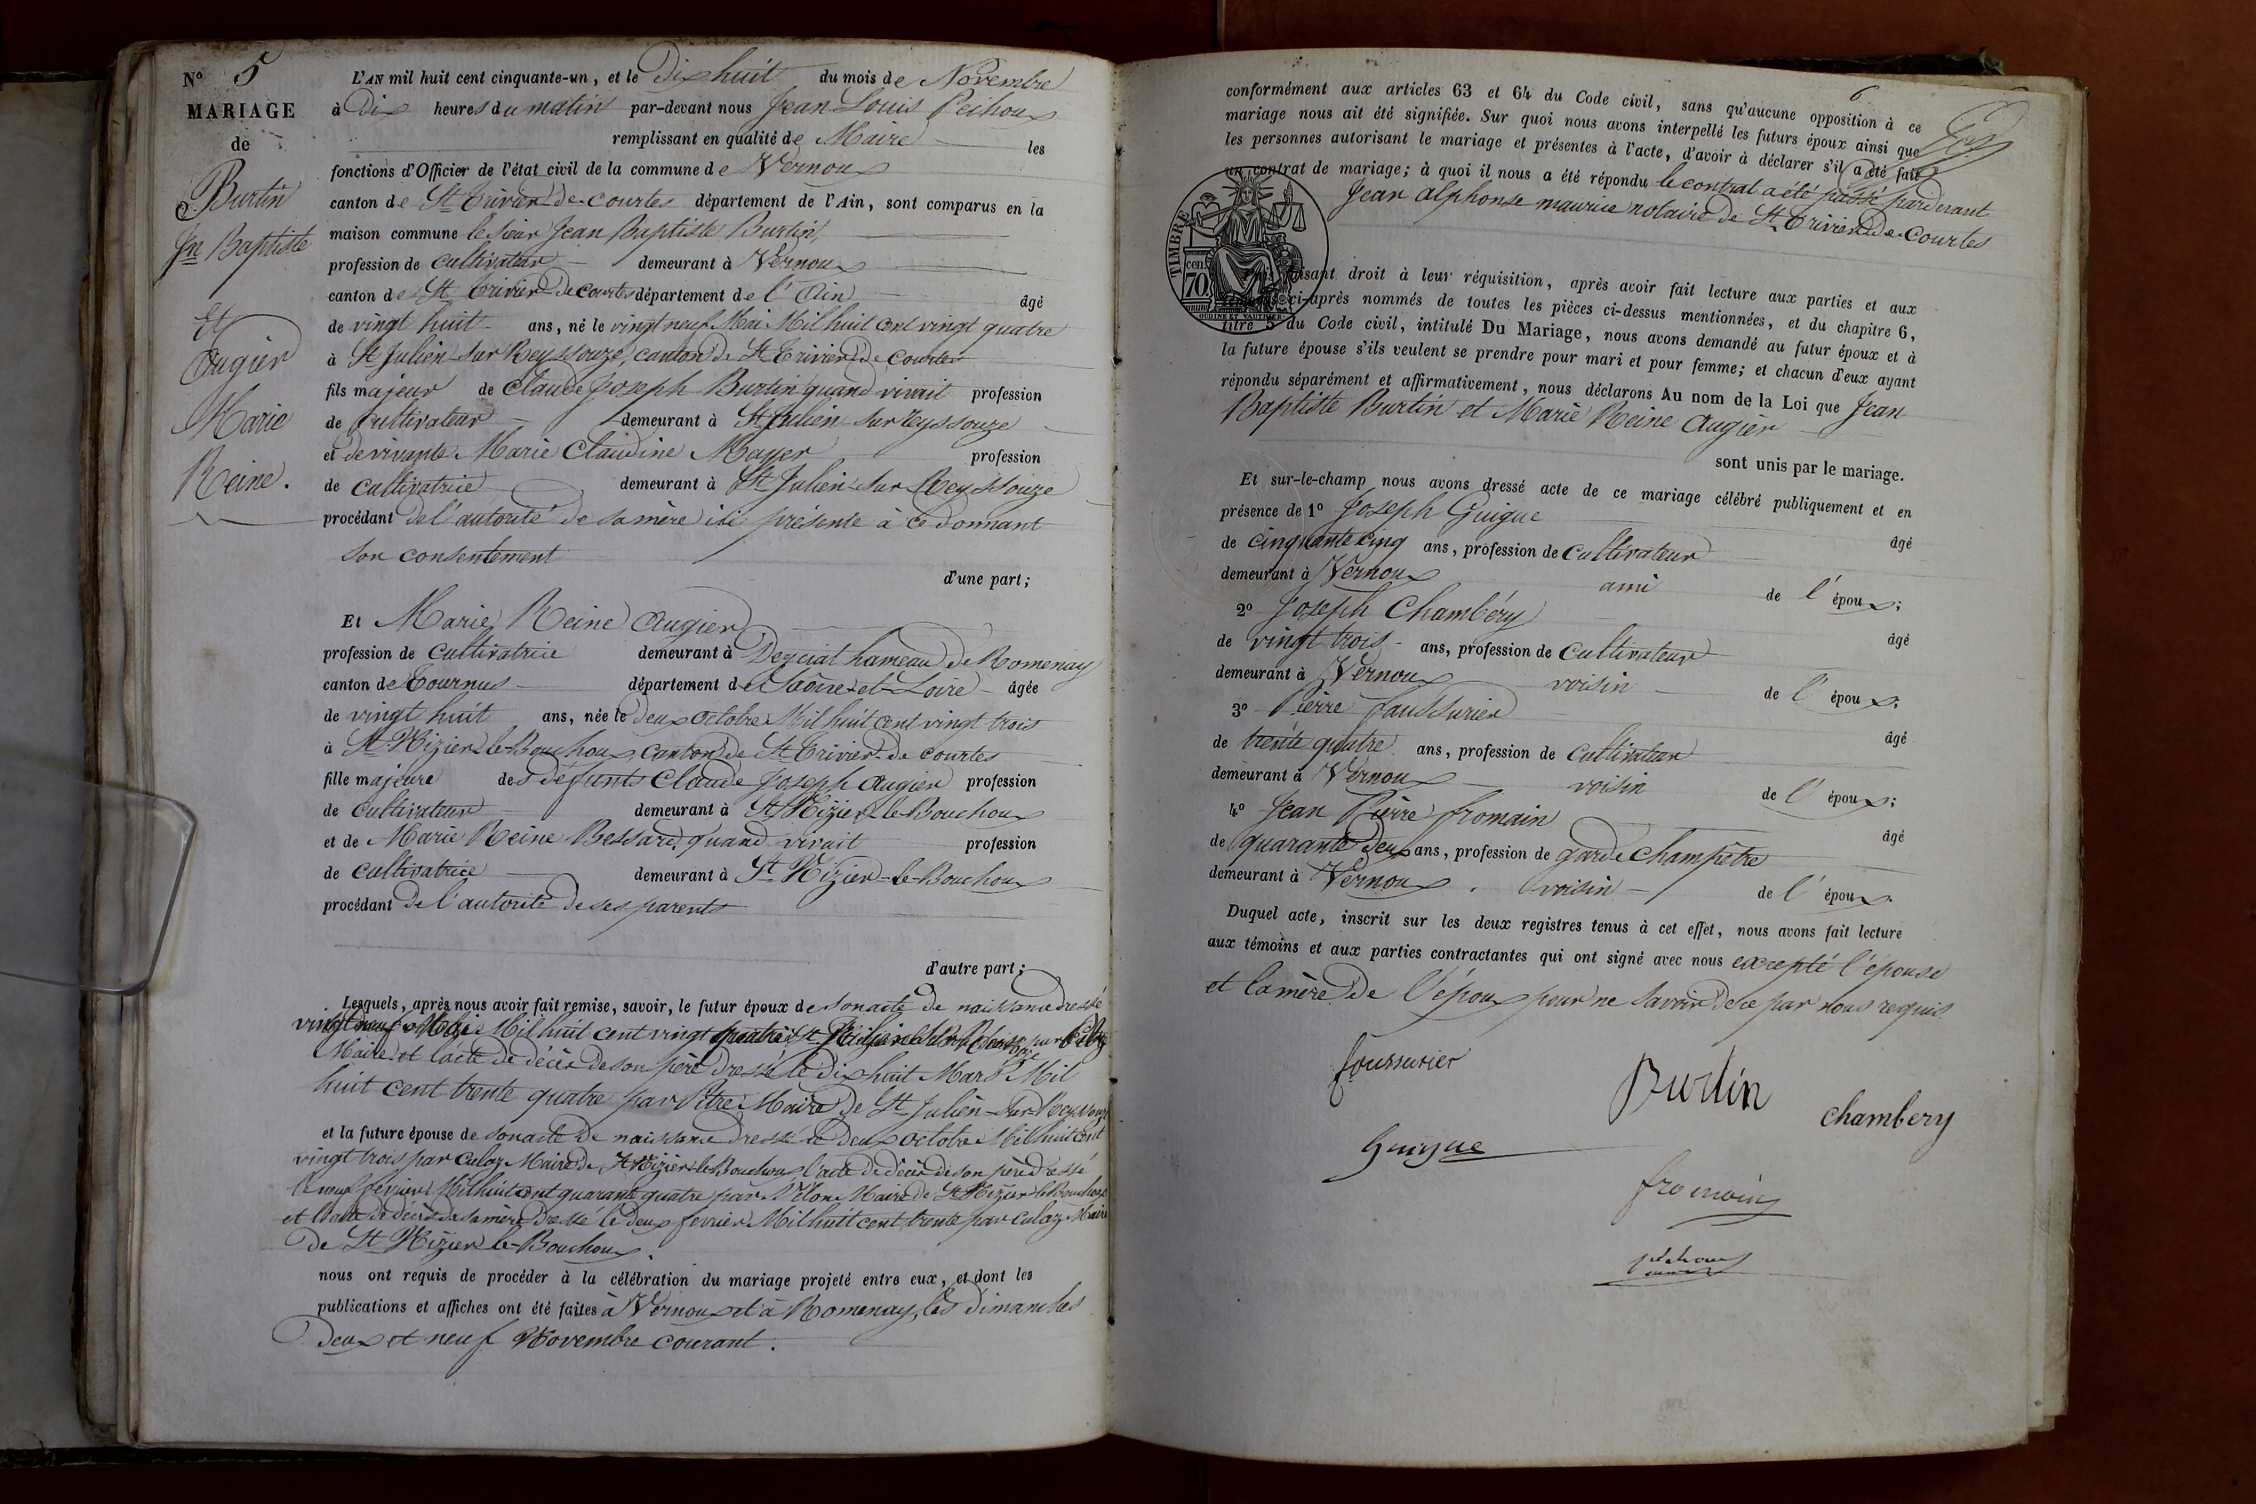 N° 5
MARIAGE
de
Burtin
Jn Baptiste
Et
Augier
Marie
Reine.
L'AN mil huit cent cinquante-un, et le Dix huit du mois de Novembre
à Dix heures du matin par-devant nous Jean Louis Pechoux
remplissant en qualité de Maire les
fonctions d'Officier de l'état civil de la commune de Vernoux
canton de St Trivier de Courtes département de l'Ain, sont comparus en la
maison commune le sieur Jean Baptiste Burtin
profession de cultivateur demeurant à Vernoux
canton de St Trivier de Courtes département de l'Ain âgé
de vingt huit ans, né le vingt neuf Mai Mil huit cent vingt quatre
à St Julien sur Reyssouze, canton de St Trivier de Courtes
fils majeur de Claude Joseph Burtin quand vivait profession
de cultivateur demeurant à St Julien sur Reyssouze
et de vivante Marie Claudine Mayer profession
de cultivatrice demeurant à St Julien sur Reyssouze
procédant de l'autorité de sa mère ici présente à ce donnant
son consentement
d'une part;
Et Marie Reine Augier
profession de cultivatrice demeurant à Deyciat hameau de Romenay
canton de Tournus département de Saône-et-Loire âgée
de vingt huit ans, née le deux octobre Mil huit cent vingt trois
à St Nizier le-Bouchoux, canton de St Trivier de courtes
fille majeure des défunts Claude Joseph Augier profession
de cultivateur demeurant à St Nizier le Bouchoux
et de Marie Reine Bessard, quand vivait profession
de cultivatrice demeurant à St Nizier-le-Bouchoux
procédant de l'autorité de ses parents
d'autre part;
Lesquels, après nous avoir fait remise, savoir, le futur époux de son acte de naissance dressé
vingt neuf Mai Mil huit cent vingt quatre par
Maire et l'acte de décès de son père dressé le dix huit Mars Mil
huit cent trente quatre par Pitre Maire de St Julien-sur-Reyssouze
et la future épouse de son acte de naissance dressé le deux octobre Mil huit cent
vingt trois par Culaz Maire de St Nizier le Bouchoux l'acte de décès de son père dressé
le neuf fevrier Mil huit cent quarante quatre par Maire de St Nizier le Bouchoux
et l'acte de décès de sa mère dressé le deux fevrier Mil huit cent trente par Culaz Maire
de St Nizier le-Bouchoux.
nous ont requis de procéder à la célébration du mariage projeté entre eux, et dont les
publications et affiches ont été faites à Vernoux et à Romenay, les dimanches
Deux et neuf Novembre courant.
6
conformément aux articles 63 et 64 du Code civil, sans qu'aucune opposition à ce
mariage nous ait été signifiée. Sur quoi nous avons interpellé les futurs époux ainsi que
les personnes autorisant le mariage et présentes à l'acte, d'avoir à déclarer s'il a été fait
un contrat de mariage; à quoi il nous a été répondu le contrat a été passé pardevant
Jean alphonse maurice notaire de St Trivier de Courtes
TIMBRE
cen. 70
faisant droit à leur réquisition, après avoir fait lecture aux parties et aux
ci-après nommés de toutes les pièces ci-dessus mentionnées, et du chapitre 6,
titre 5 du Code civil, intitulé Du Mariage, nous avons demandé au futur époux et à
la future épouse s'ils veulent se prendre pour mari et pour femme; et chacun d'eux ayant
répondu séparément et affirmativement, nous déclarons Au nom de la Loi que Jean
Baptiste Burtin et Marie Reine Augier
sont unis par le mariage.
Et sur-le-champ nous avons dressé acte de ce mariage célébré publiquement et en
présence de 1° Joseph Guigue âgé
de cinquante cinq ans, profession de cultivateur
demeurant à Vernoux ami de l'époux;
2° Joseph Chambéry âgé
de vingt trois ans, profession de cultivateur
demeurant à Vernoux voisin de l'époux;
3° Pierre Faussurier âgé
de trente quatre ans, profession de cultivateur
demeurant à Vernoux voisin de l'époux;
4° Jean Pierre fromain âgé
de quarante deux ans, profession de garde champêtre
demeurant à Vernoux. voisin de l'époux.
Duquel acte, inscrit sur les deux registres tenus à cet effet, nous avons fait lecture
aux témoins et aux parties contractantes qui ont signé avec nous excepté l'épouse
et la mère de l'époux pour ne savoir de ce par nous requis.
foussurier
Burtin
chambery
guigue
fromain